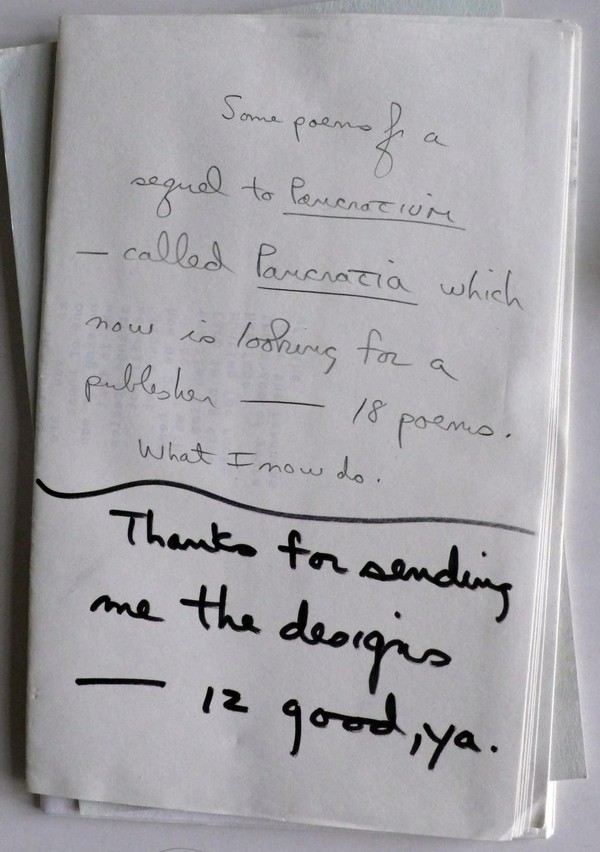 Some poems fr a
sequel to Pancratium
— called Pancratia which
now is looking for a
publisher —— 18 poems.
What I now do.
Thanks for sending
me the designs
— 12 good, ya.